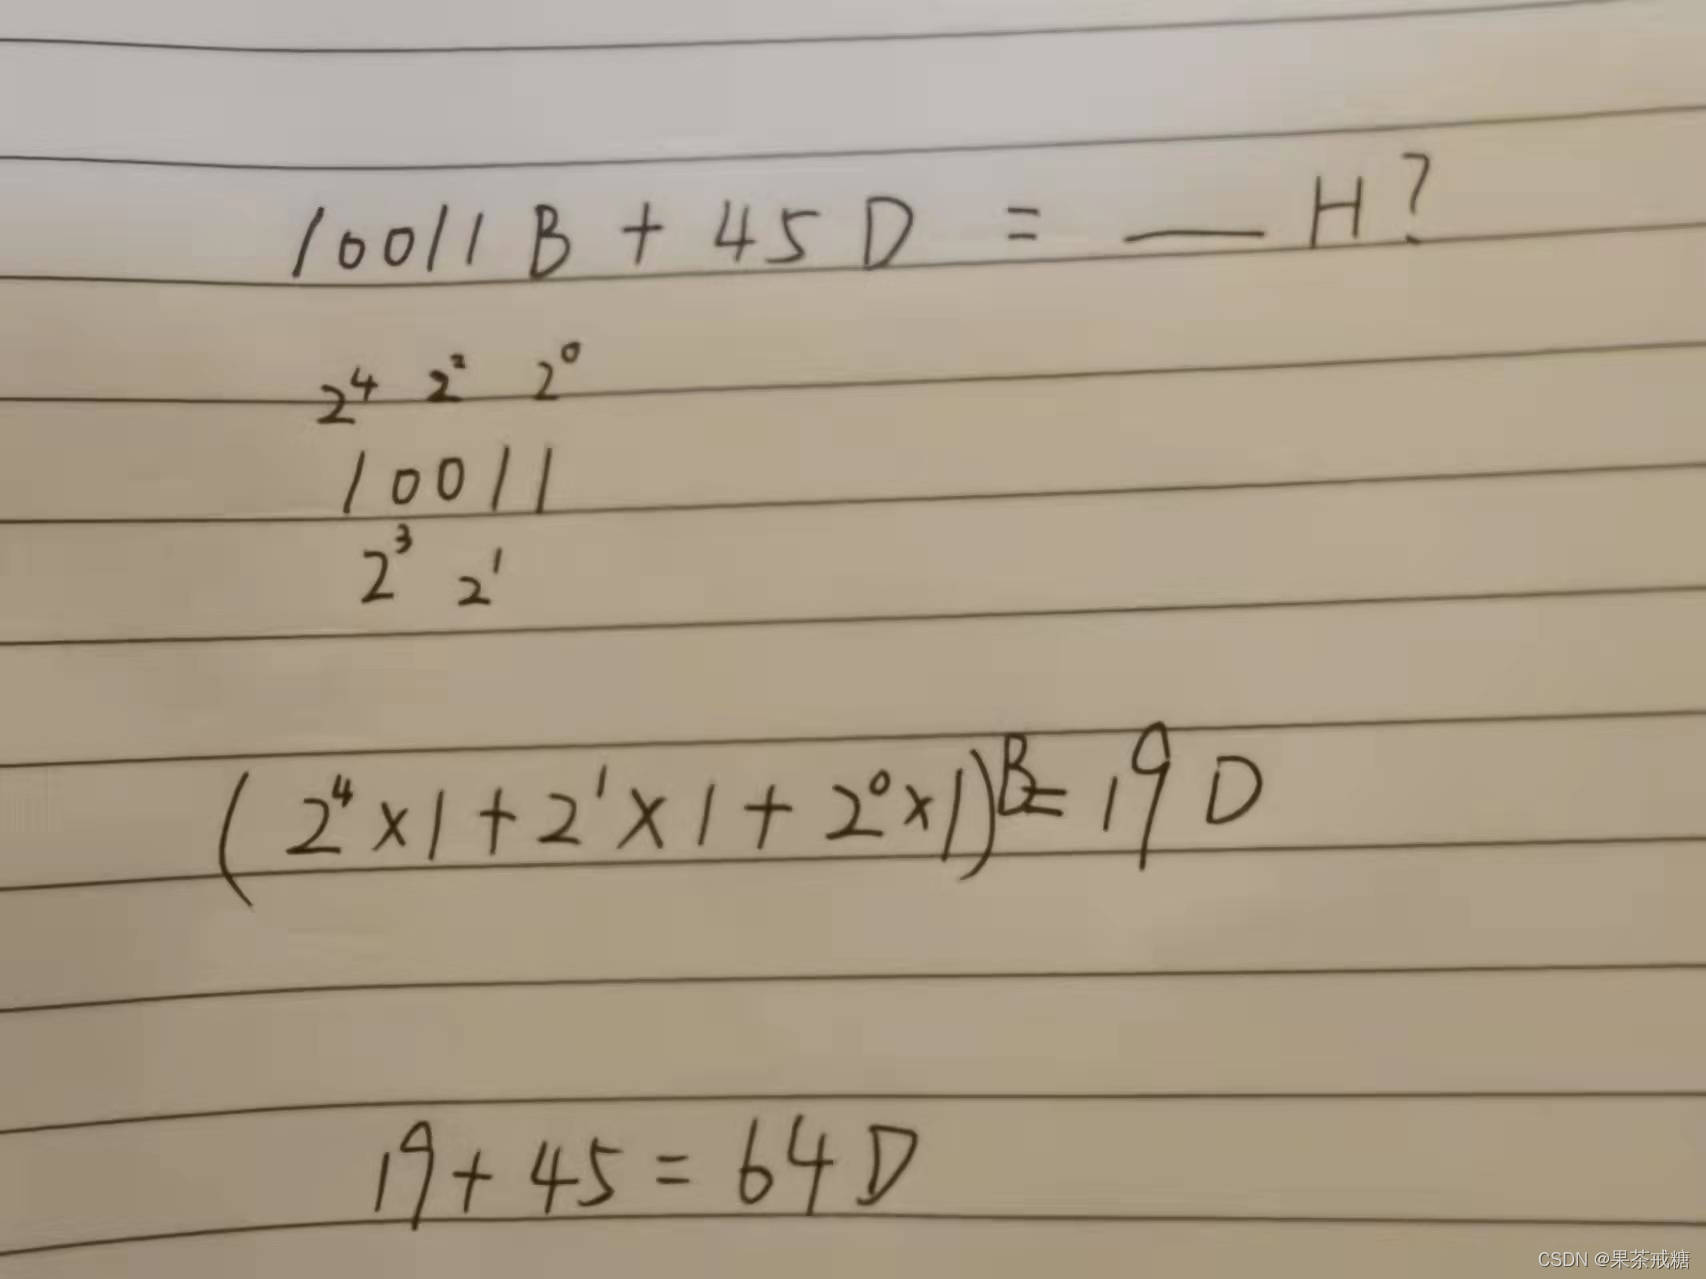 10011 B + 45 D = __ H?
2⁴ 2² 2⁰
10011
2³ 2¹
(2⁴×1+2¹×1+2⁰×1)B=19D
19+45=64D
CSDN @果茶戒糖